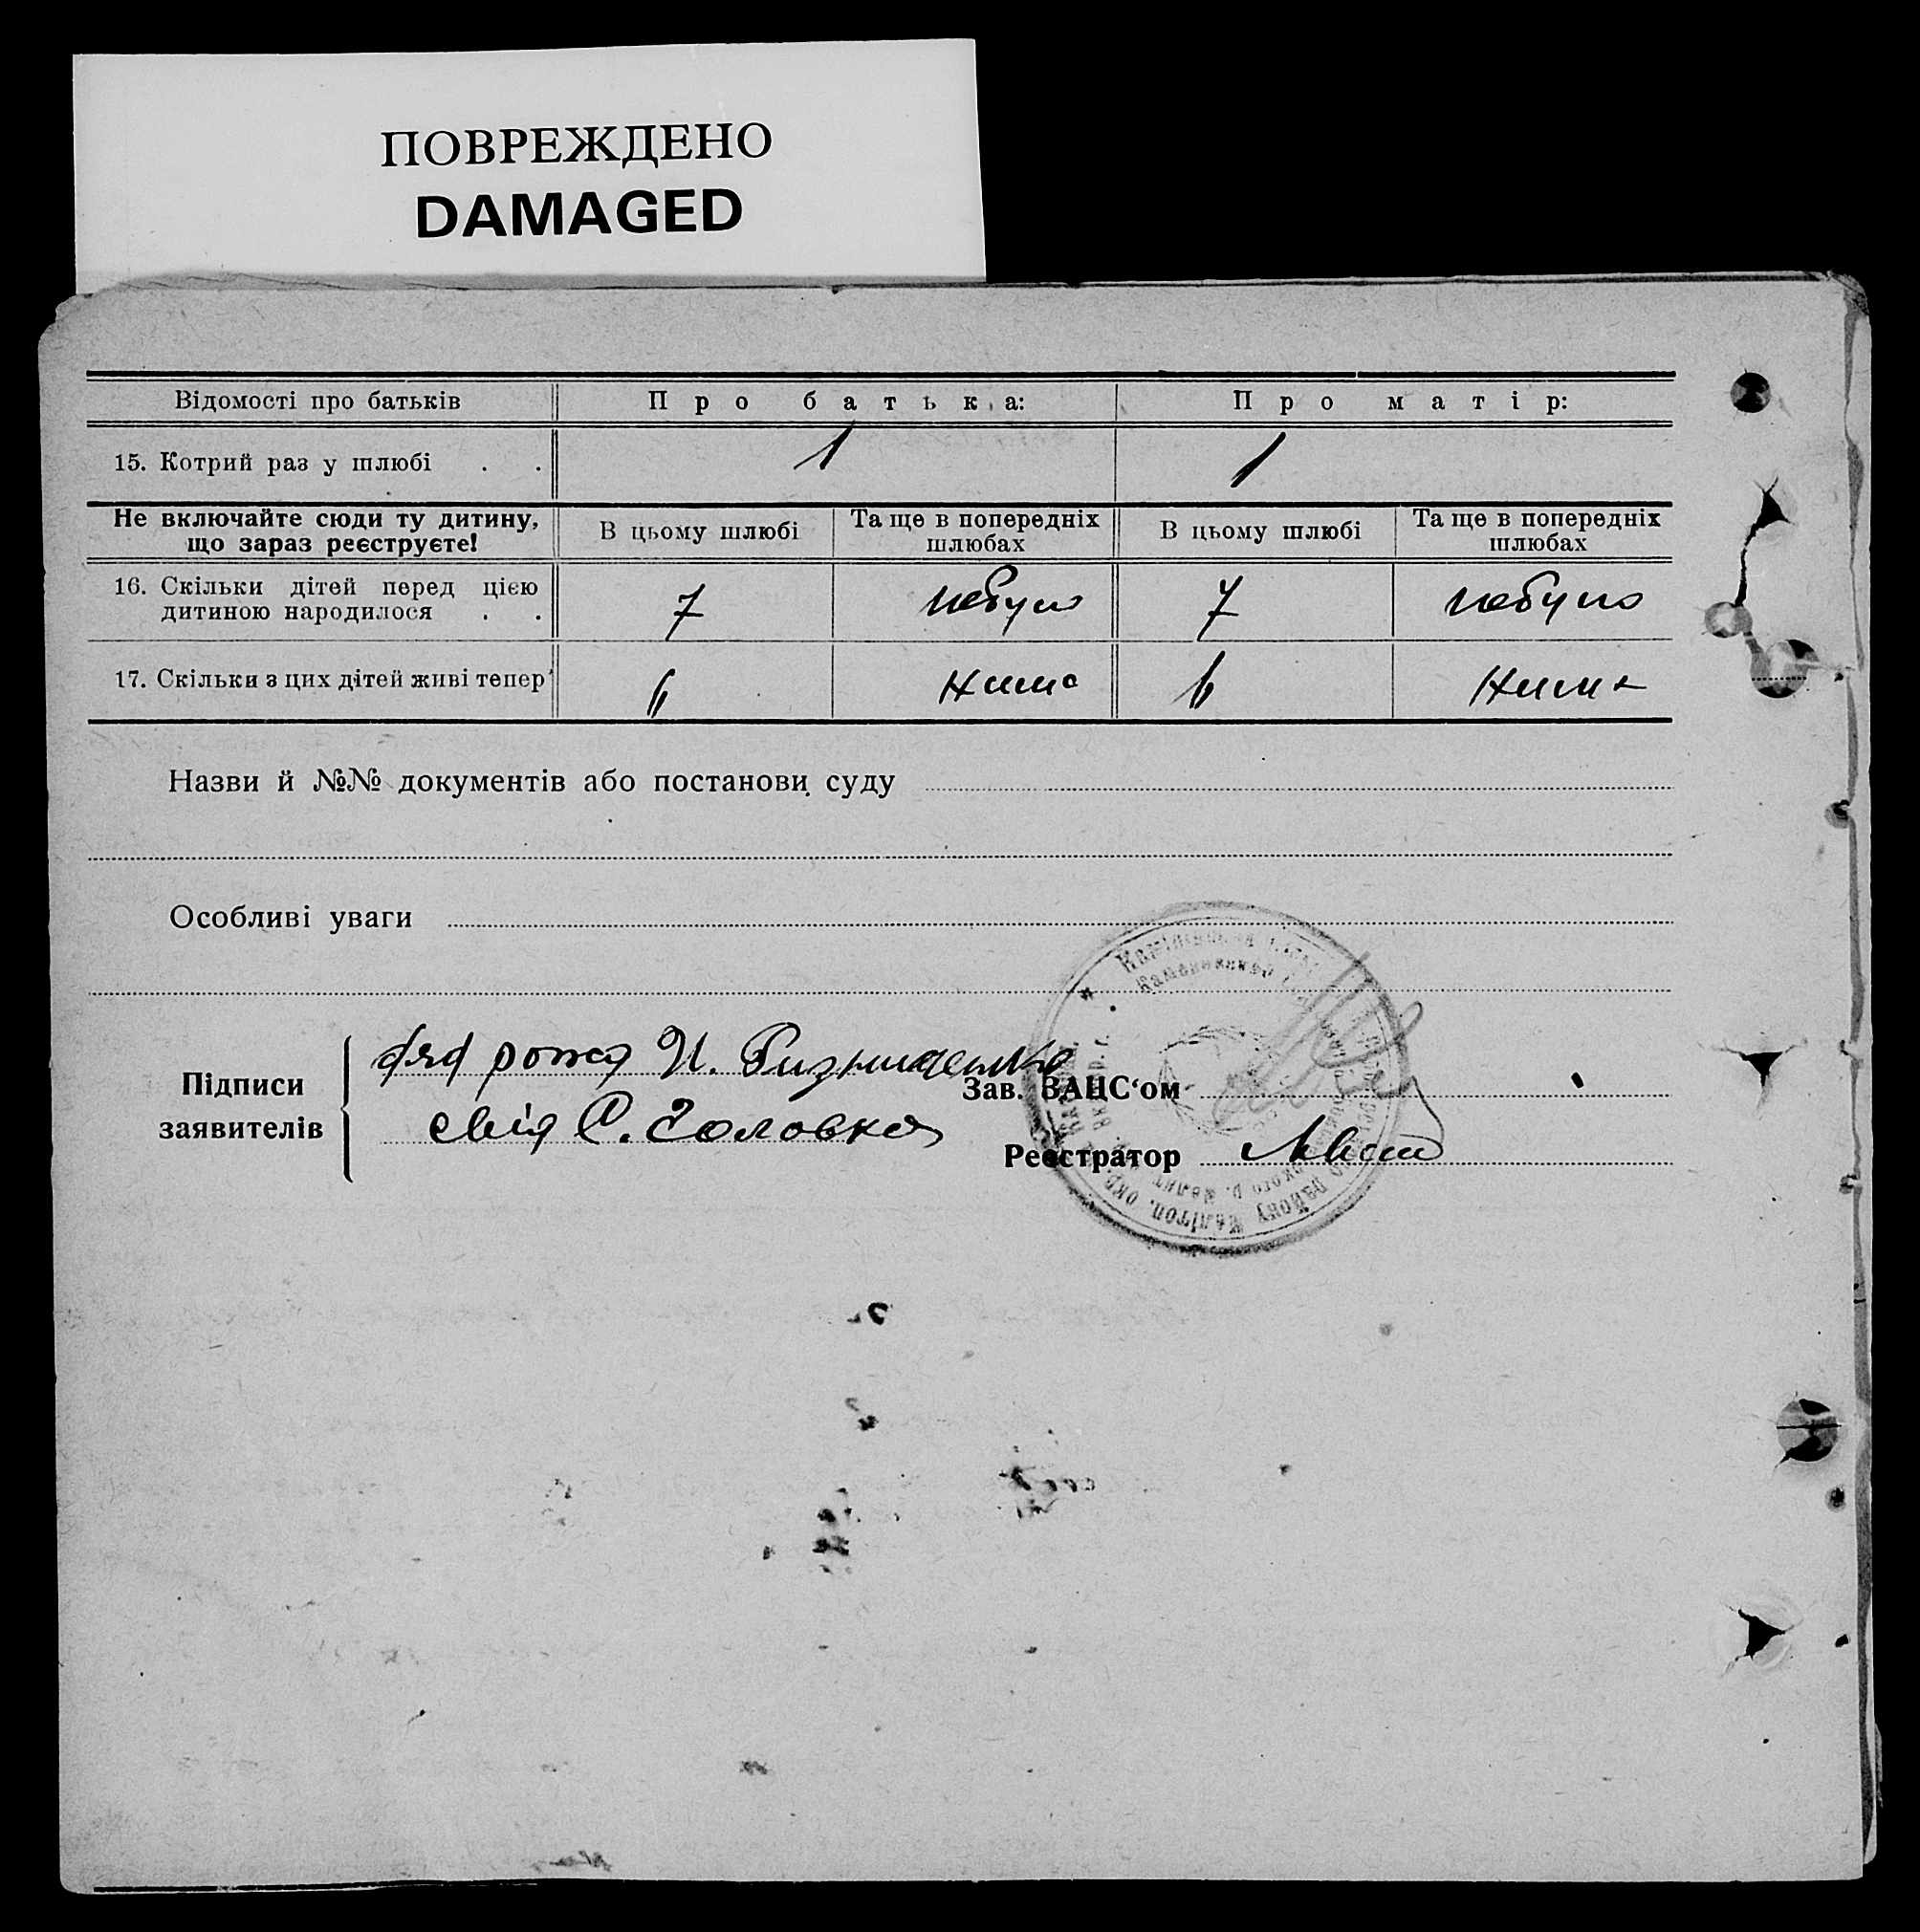 ПОВРЕЖДЕНО
DAMAGED
Відомості про батьків Про батька: Про матір:
15. Котрий раз у шлюбі . . 1 1
Не включайте сюди ту дитину, що зараз реєструєте! В цьому шлюбі Та ще в попередніх шлюбах В цьому шлюбі Та ще в попередніх шлюбах
16. Скільки дітей перед цією
дитиною народилося . . 7 небуло 7 небуло
17. Скільки з цих дітей живі тепер 6 нима 6 нима
Назви й №№ документів або постанови суду
Особливі уваги
Підписи
заявителів
И.
Зав. ЗАЦС‘ом
С. Головко
Реєстратор
району Мелітоп. окр